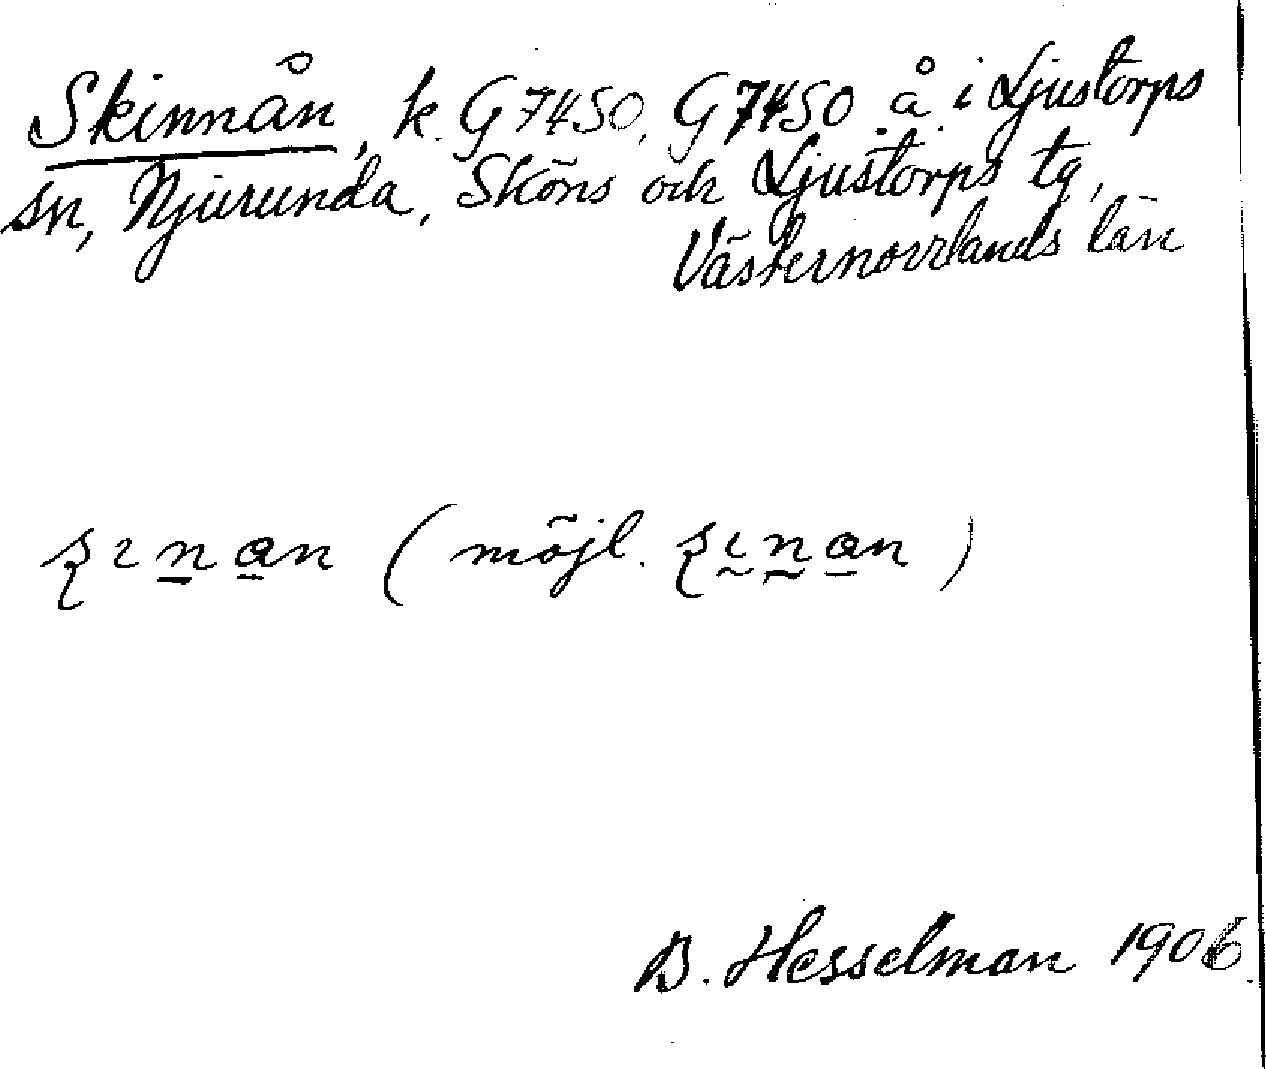 Skinnån, k. G 7450, G 7450 å i Ljustorps
sn, Njurunda, Sköns och Ljustorps tg,
Västernorrlands län
ʂınan (möjl. ʂınan)
B. Hesselman 1906.